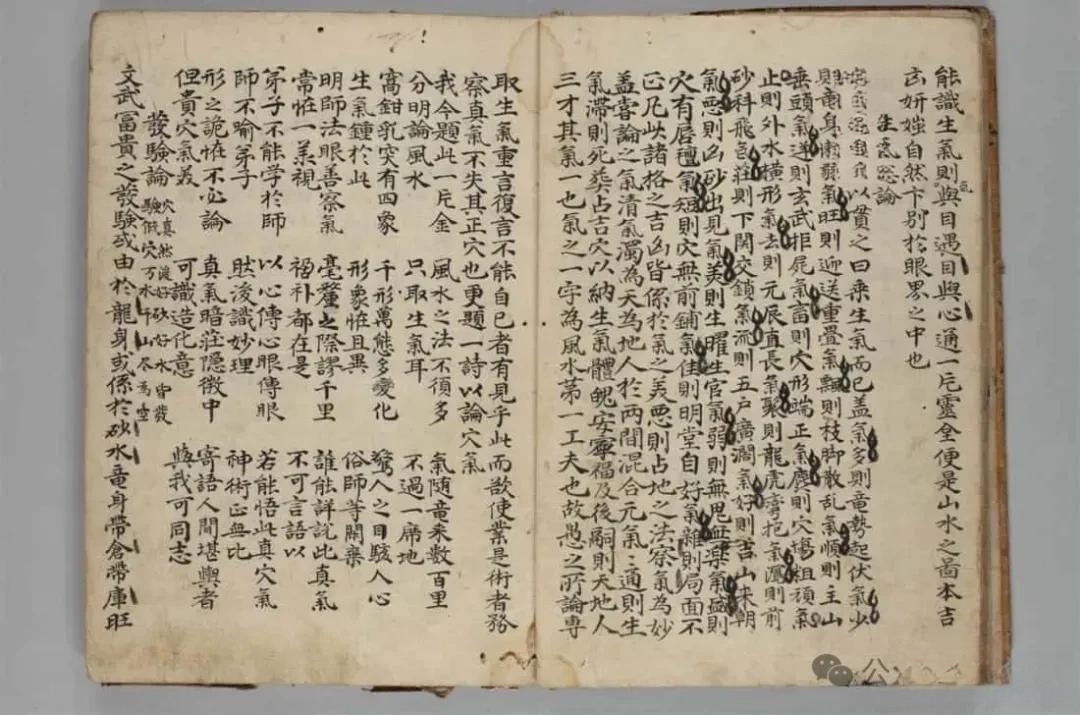 能識生氣則與目遇目與心通一片靈全便是山水之啚本吉
凶妍媸自然卞別於眼界之中也
生氣總論
以一貫之曰乘生氣而已盖氣多則竜勢起伏氣少
則竜身懶弱氣旺則迎送重疊氣飄則枝脚散乱氣順則主山
垂頭氣逆則玄武拒屍氣畜則穴形端正氣塵則穴塲粗頑氣
止則外水橫形氣去則元辰直長氣聚則龍虎湾抱氣瀉則前
砂斜飛氣莊則下関交鎖氣流則五戶廣濶氣好則吉山来朝
氣惡則凶砂出見氣美則生曜生官氣弱則無鬼無樂氣盛則
穴有唇氊氣短則穴無前鋪氣佳則明堂自好氣雜則局面不
正凡此諸格之吉凶皆係於氣之美惡則占地之法察氣為妙
盖甞論之氣清氣濁為天為地人於兩間混合元氣〻通則生
氣滯則死葬占吉穴以納生氣體魄安寧福及後嗣則天地人
三才其氣一也氣之一字為風水第一工夫也故愚之所論專
取生氣重言復言不能自已者有見乎此而欲使業是術者務
察真氣不失其正穴也更題一詩以論穴氣
我今題此一片金 風水之法不須多 氣随竜来数百里
分明論風水 只取生氣耳 不過一席地
窩鉗乳突有四象 千形萬態多變化 驚人之目駭人心
生氣鍾於此 形象恠且異 俗師等閑棄
明師法眼善察氣 毫釐之際謬千里 誰能詳說此真氣
常恠一美視 禍福都在是 不可言語以
弟子不能学於師 以心傳心眼傳眼 若能悟此真穴氣
師不喻弟子 然後識妙理 神術正無比
形之詭恠不必論 真氣暗莊隐微中 寄語人間堪輿者
但貴穴氣美 可識造化意 與我可同志
發驗論 穴真然後好砂好水皆發
驗假穴万水千山尽為空
文武冨貴之發驗或由於龍身或係於砂水竜身帶倉帶庫旺
公